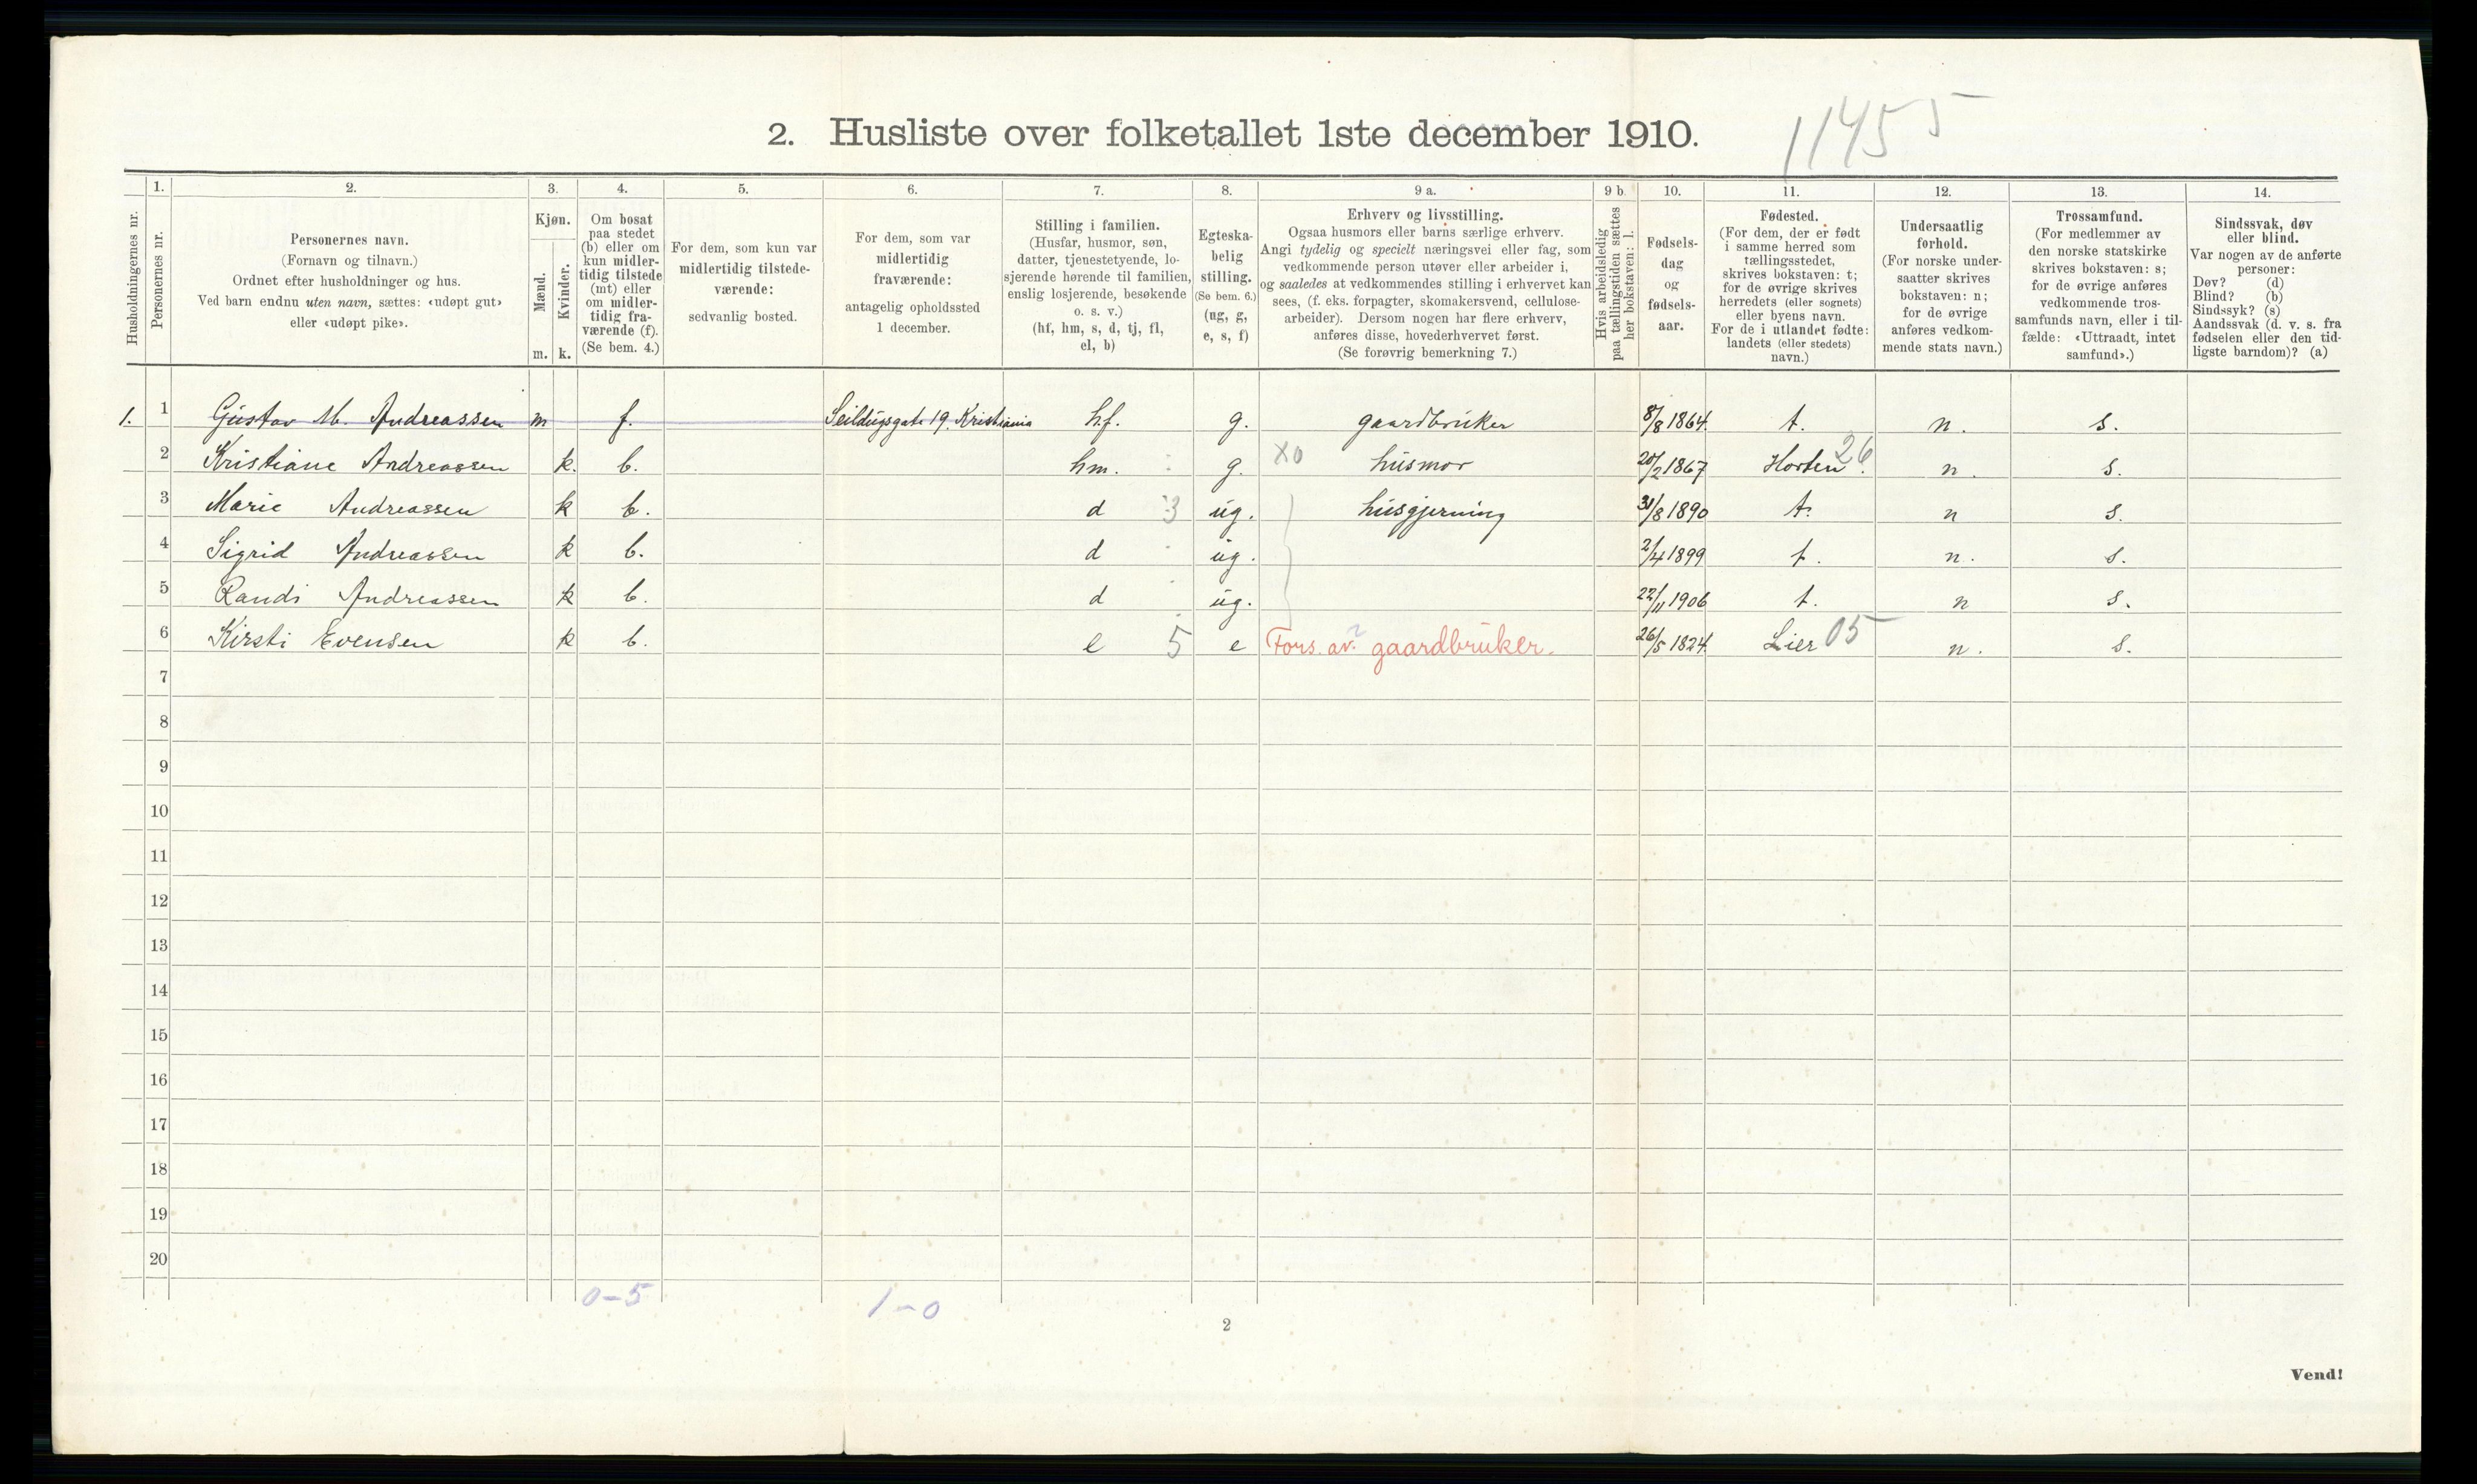 11455
2. Husliste over folketallet 1ste december 1910.
Husholdningernes nr.
1.
Personernes nr.
2.
Personernes navn.
(Fornavn og tilnavn.)
Ordnet efter husholdninger og hus.
Ved barn endnu uten navn, sættes: «udøpt gut»
eller «udøpt pike».
3.
Kjøn.
Mænd.
Kvinder.
m. k.
4.
Om bosat
paa stedet
(b) eller om
kun midler-
tidig tilstede
(mt) eller
om midler-
tidig fra-
værende (f).
(Se bem. 4.)
5.
For dem, som kun var
midlertidig tilstede-
værende:
sedvanlig bosted.
6.
For dem, som var
midlertidig
fraværende:
antagelig opholdssted
1 december.
7.
Stilling i familien.
(Husfar, husmor, søn,
datter, tjenestetyende, lo-
sjerende hørende til familien,
enslig losjerende, besøkende
o. s. v.)
(hf, hm, s, d, tj, fl,
el, b)
8.
Egteska-
belig
stilling.
(Se bem. 6.)
(ug, g,
e, s, f)
9 a.
Erhverv og livsstilling.
Ogsaa husmors eller barns særlige erhverv.
Angi tydelig og specielt næringsvei eller fag, som
vedkommende person utøver eller arbeider i,
og saaledes at vedkommendes stilling i erhvervet kan
sees, (f. eks. forpagter, skomakersvend, cellulose-
arbeider). Dersom nogen har flere erhverv,
anføres disse, hovederhvervet først.
(Se forøvrig bemerkning 7.)
9 b.
Hvis arbeidsledig
paa tællingstiden sættes
her bokstaven: l.
10.
Fødsels-
dag
og
fødsels-
aar.
11.
Fødested.
(For dem, der er født
i samme herred som
tællingsstedet,
skrives bokstaven: t;
for de øvrige skrives
herredets (eller sognets)
eller byens navn.
For de i utlandet fødte:
landets (eller stedets)
navn.)
12.
Undersaatlig
forhold.
(For norske under-
saatter skrives
bokstaven: n;
for de øvrige
anføres vedkom-
mende stats navn.)
13.
Trossamfund.
(For medlemmer av
den norske statskirke
skrives bokstaven: s;
for de øvrige anføres
vedkommende tros-
samfunds navn, eller i til-
fælde: «Uttraadt, intet
samfund».)
14.
Sindssvak, døv
eller blind.
Var nogen av de anførte
personer:
Døv? (d)
Blind? (b)
Sindssyk? (s)
Aandssvak (d. v. s. fra
fødselen eller den tid-
ligste barndom)? (a)
1. 1 Gustav M. Andreassen m f. Seildugsgate 19. Kristiania h.f. g. gaardbruker 8/8 1864. t. n. s.
2 Kristiane Andreassen k. b. hm. g. xo husmor 20/2 1867 Horten. 26 n. s.
3 Marie Andreassen k b. d 3 ug. husgjerning 31/8 1890 t. n s.
4 Sigrid Andreassen k b. d ug. 2/4 1899 t. n. s.
5 Randi Andreassen k b. d ug. 22/11 1906 t. n s.
6 Kirsti Evensen k b. e 5 e Fors. av. gaardbruker. 26/5 1824. Lier 05 n. s.
7
8
9
10
11
12
13
14
15
16
17
18
19
20
0-5 1-0
2
Vend!